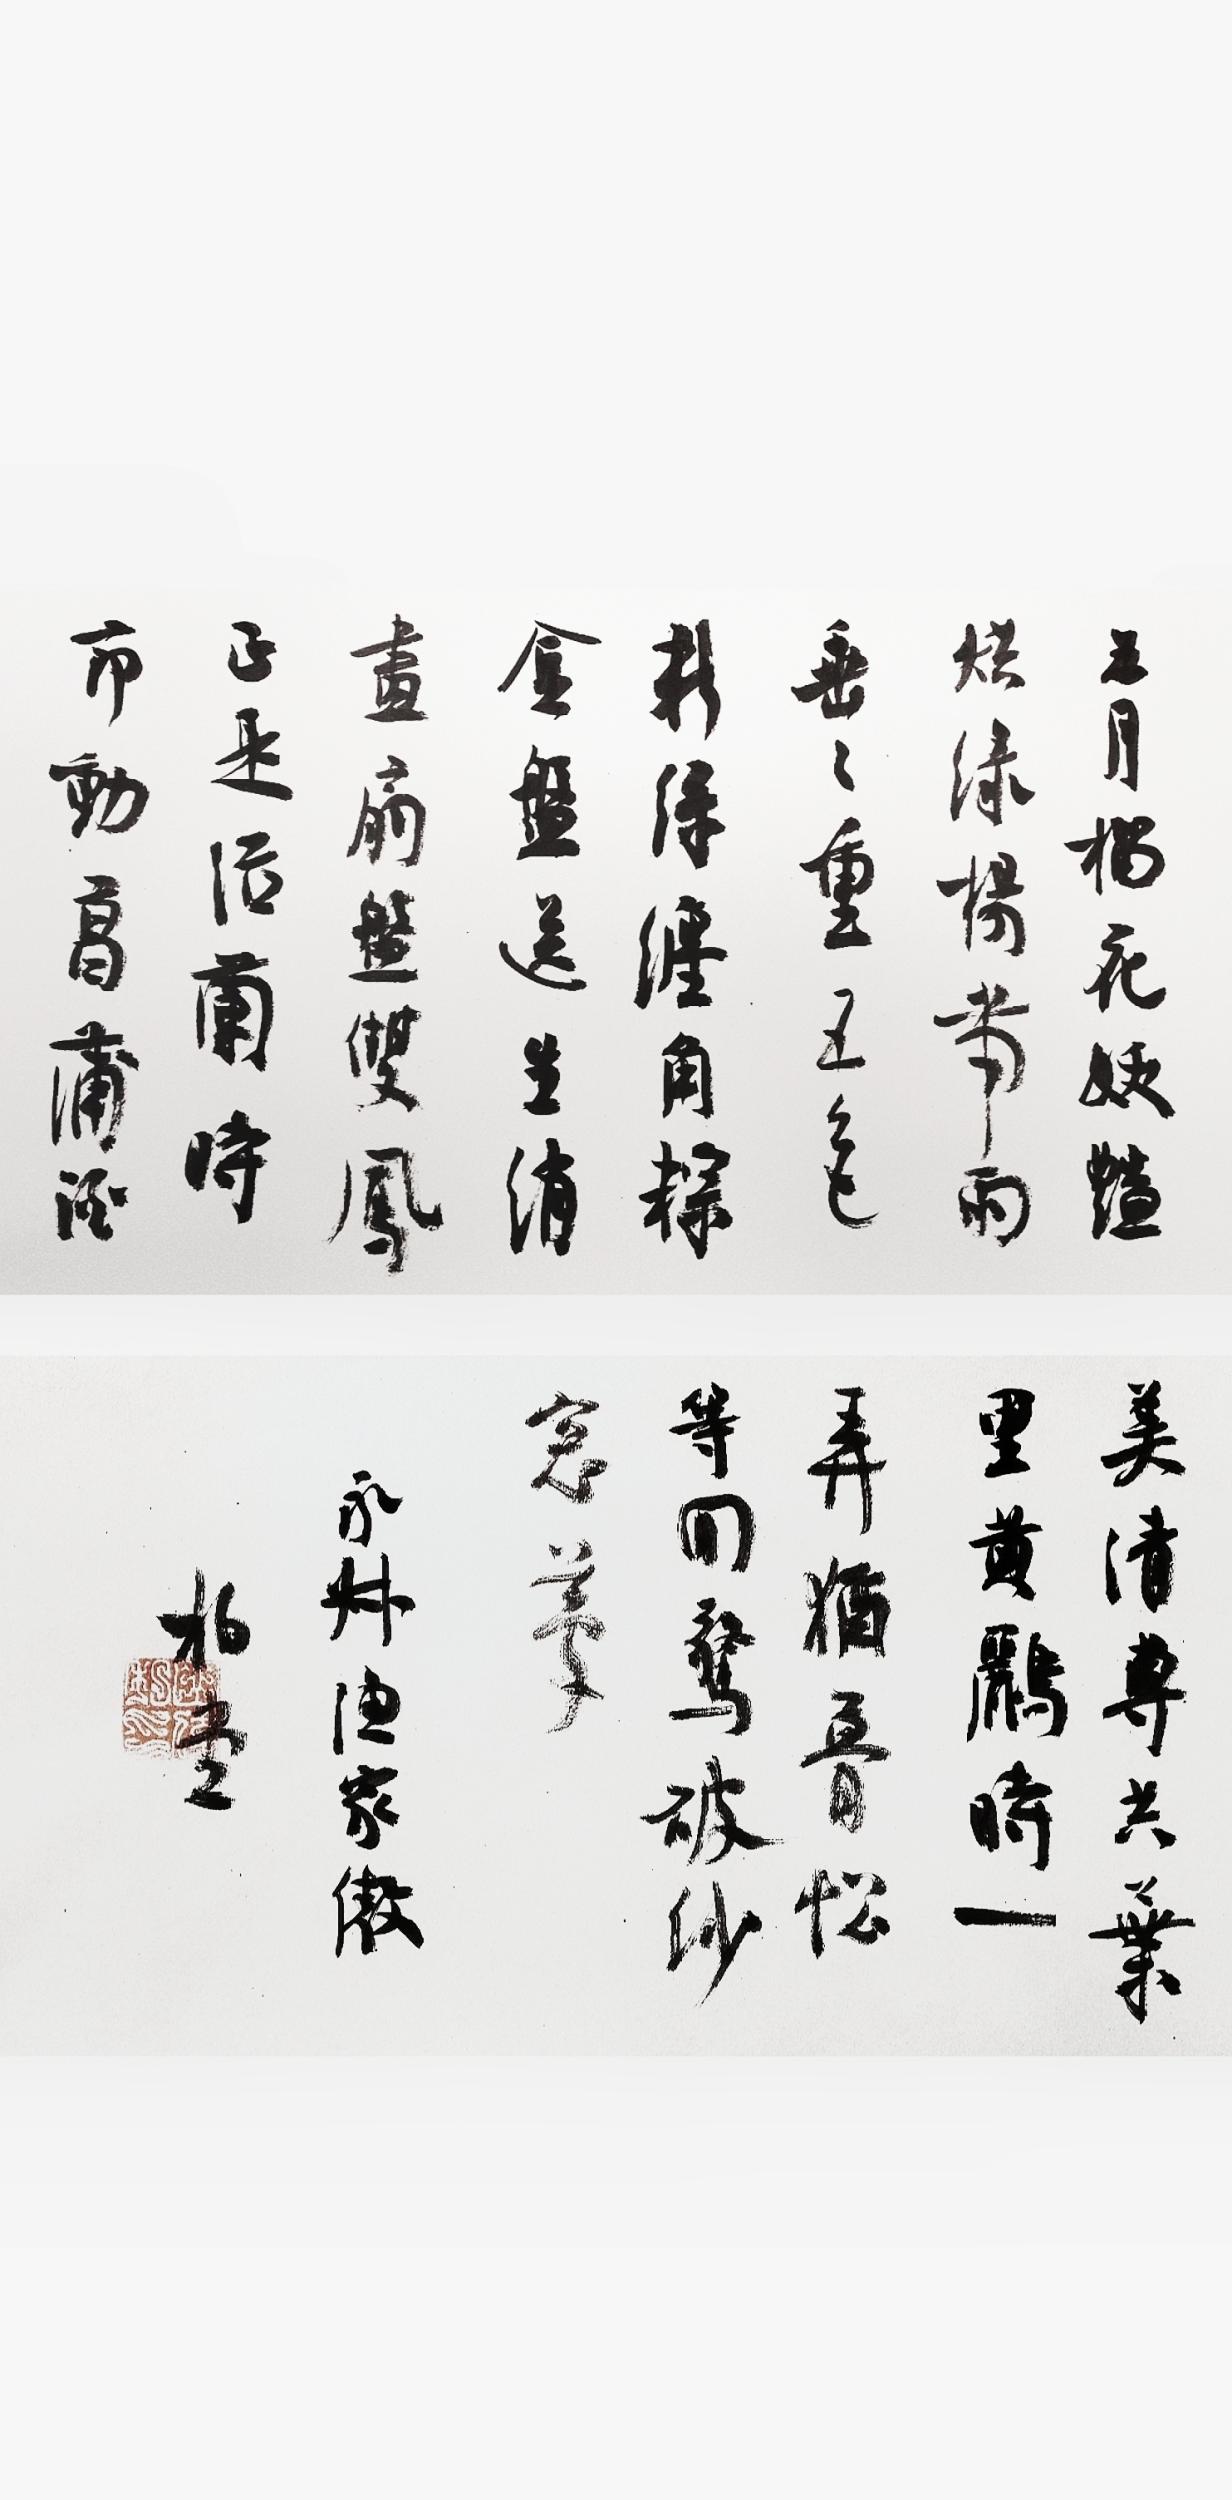 五月榴花妖艷
烘綠楊帶雨
垂〻重五色
新絲纏角粽
金盤送生綃
畫扇盤雙鳳
正是浴蘭時
節動菖蒲酒
美清尊共葉
里黃鸝時一
弄猶瞢忪
等閒驚破紗
窓夢
永叔漁家傲
柏堂